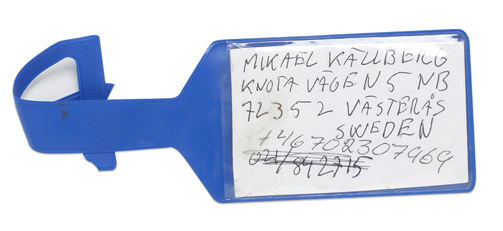 MIKAEL KÄLLBERG
KNOTAVÄGEN 5 NB
72352 VÄSTERÅS
SWEDEN
+46702307969